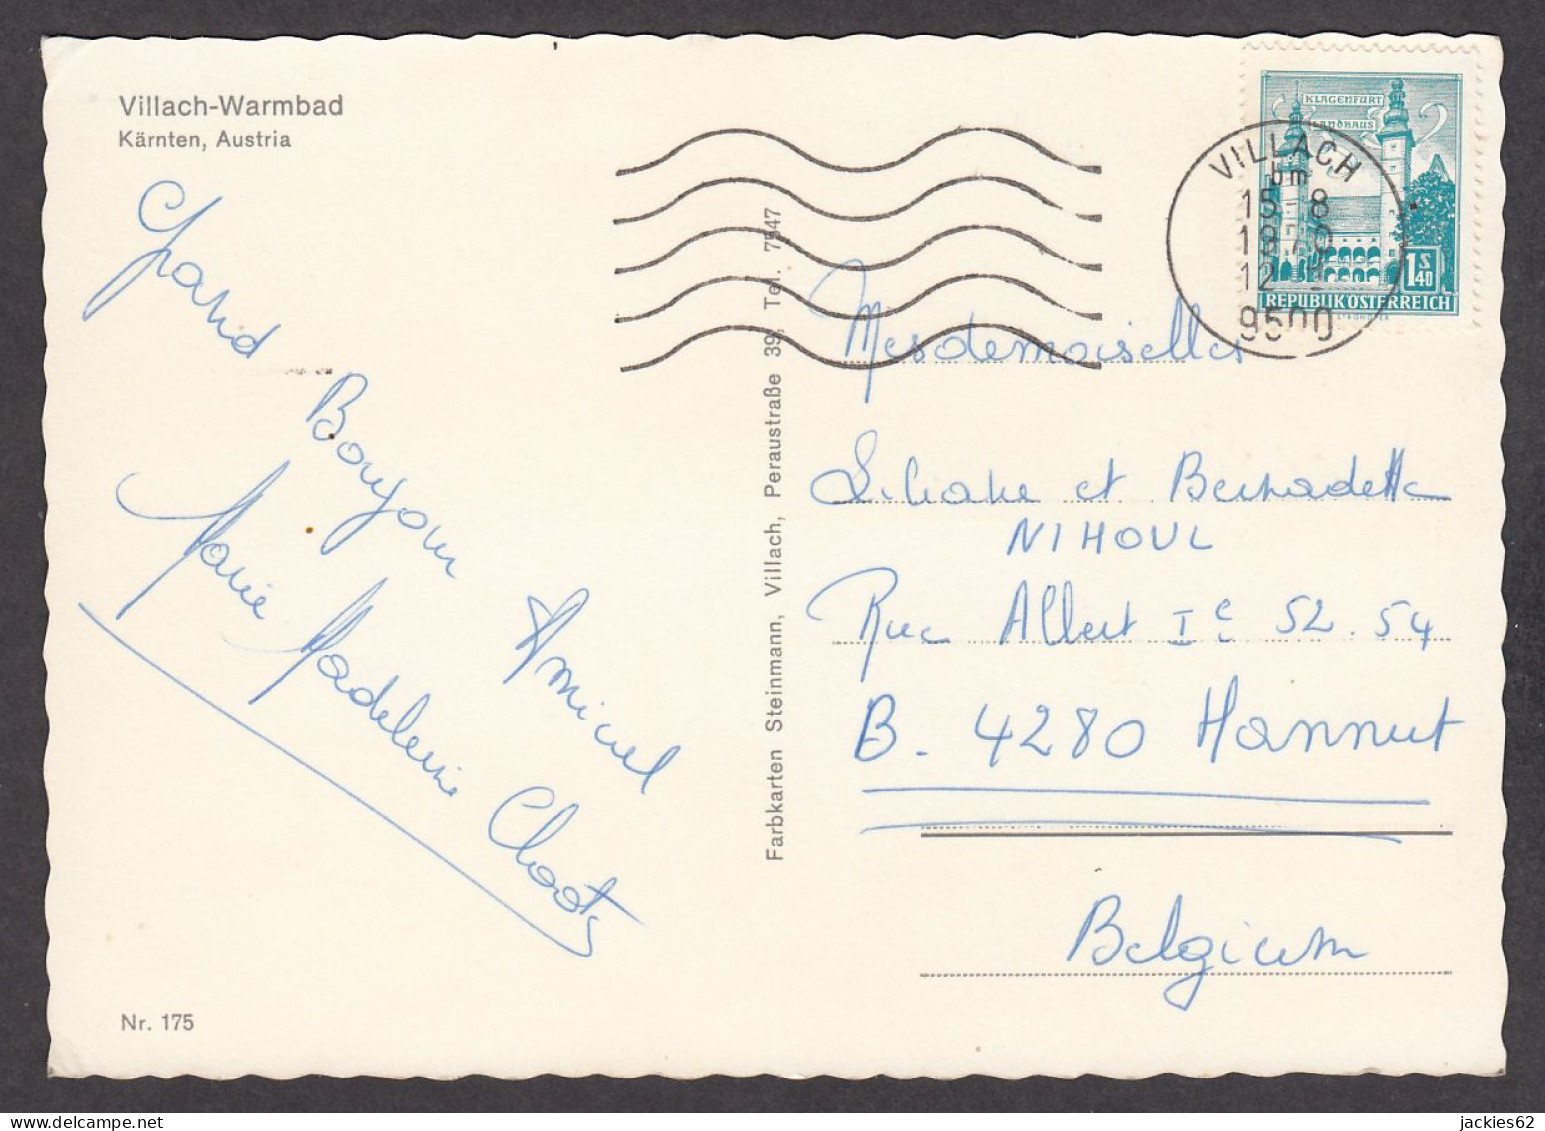 Villach-Warmbad
Kärnten, Austria
Grand
Bonjour
Amical
Marie Madeleine Cloots
Nr. 175
Farbkarten Steinmann, Villach, Peraustraße 39, Tel. 7547
KLAGENFURT
LANDHAUS
1 S 40
REPUBLIK ÖSTERREICH
VILLACH
bm
15-8
1970
12
9500
Mesdemoiselles
Liliane et Bernadette
NIHOUL
Rue Albert Ie 52.54
B. 4280 Hannut
Belgium
jackies62